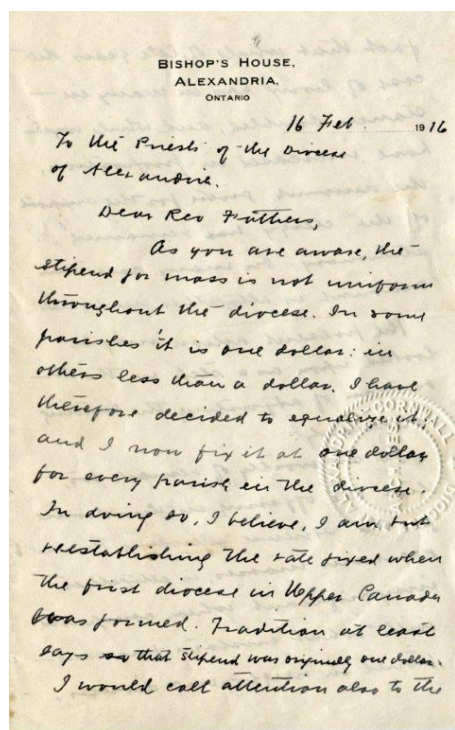 BISHOP'S HOUSE,
ALEXANDRIA,
ONTARIO
16 Feb. 1916
To the Priests of the Diocese
of Alexandria.
Dear Rev Fathers,
As you are aware, the
stipend for mass is not uniform
throughout the diocese. In some
parishes it is one dollar: in
others less than a dollar. I have
therefore decided to equalize it,
and I now fix it at one dollar
for every parish in the diocese.
In doing so, I believe, I am but
reestablishing the rate fixed when
the first diocese in Upper Canada
was formed. Tradition at least
says that stipend was originally one dollar.
I would call attention also to the
CORNWALL